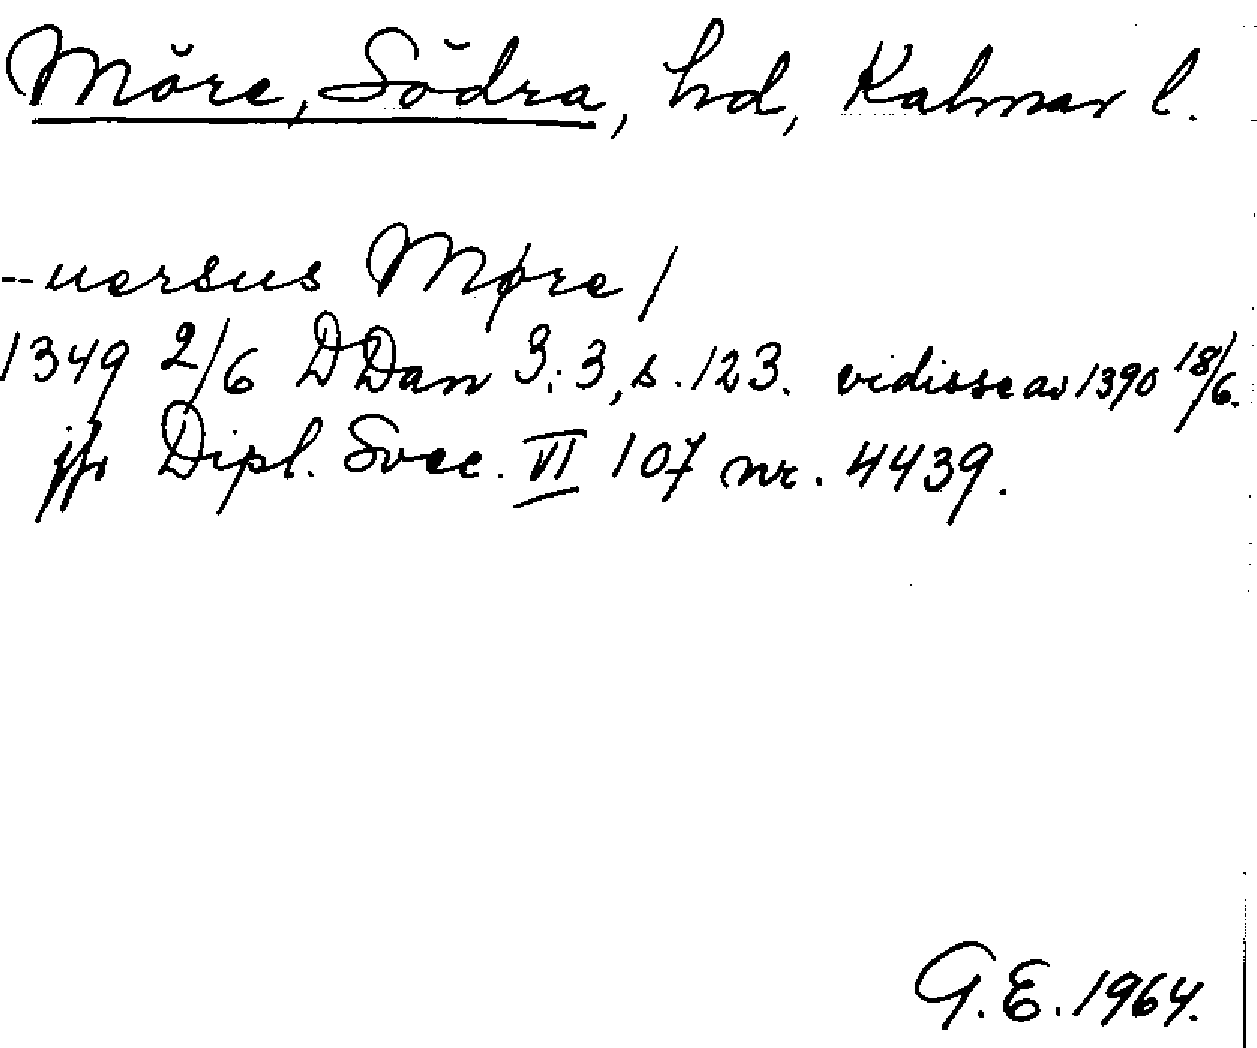 Möre, Södra, hd, Kalmar l.
--uersus Møre/
1349 2/6 DDan 3:3, s. 123. vidisse av 1390 18/6.
jfr Dipl. Svec. VI 107 nr. 4439.
G.E. 1964.